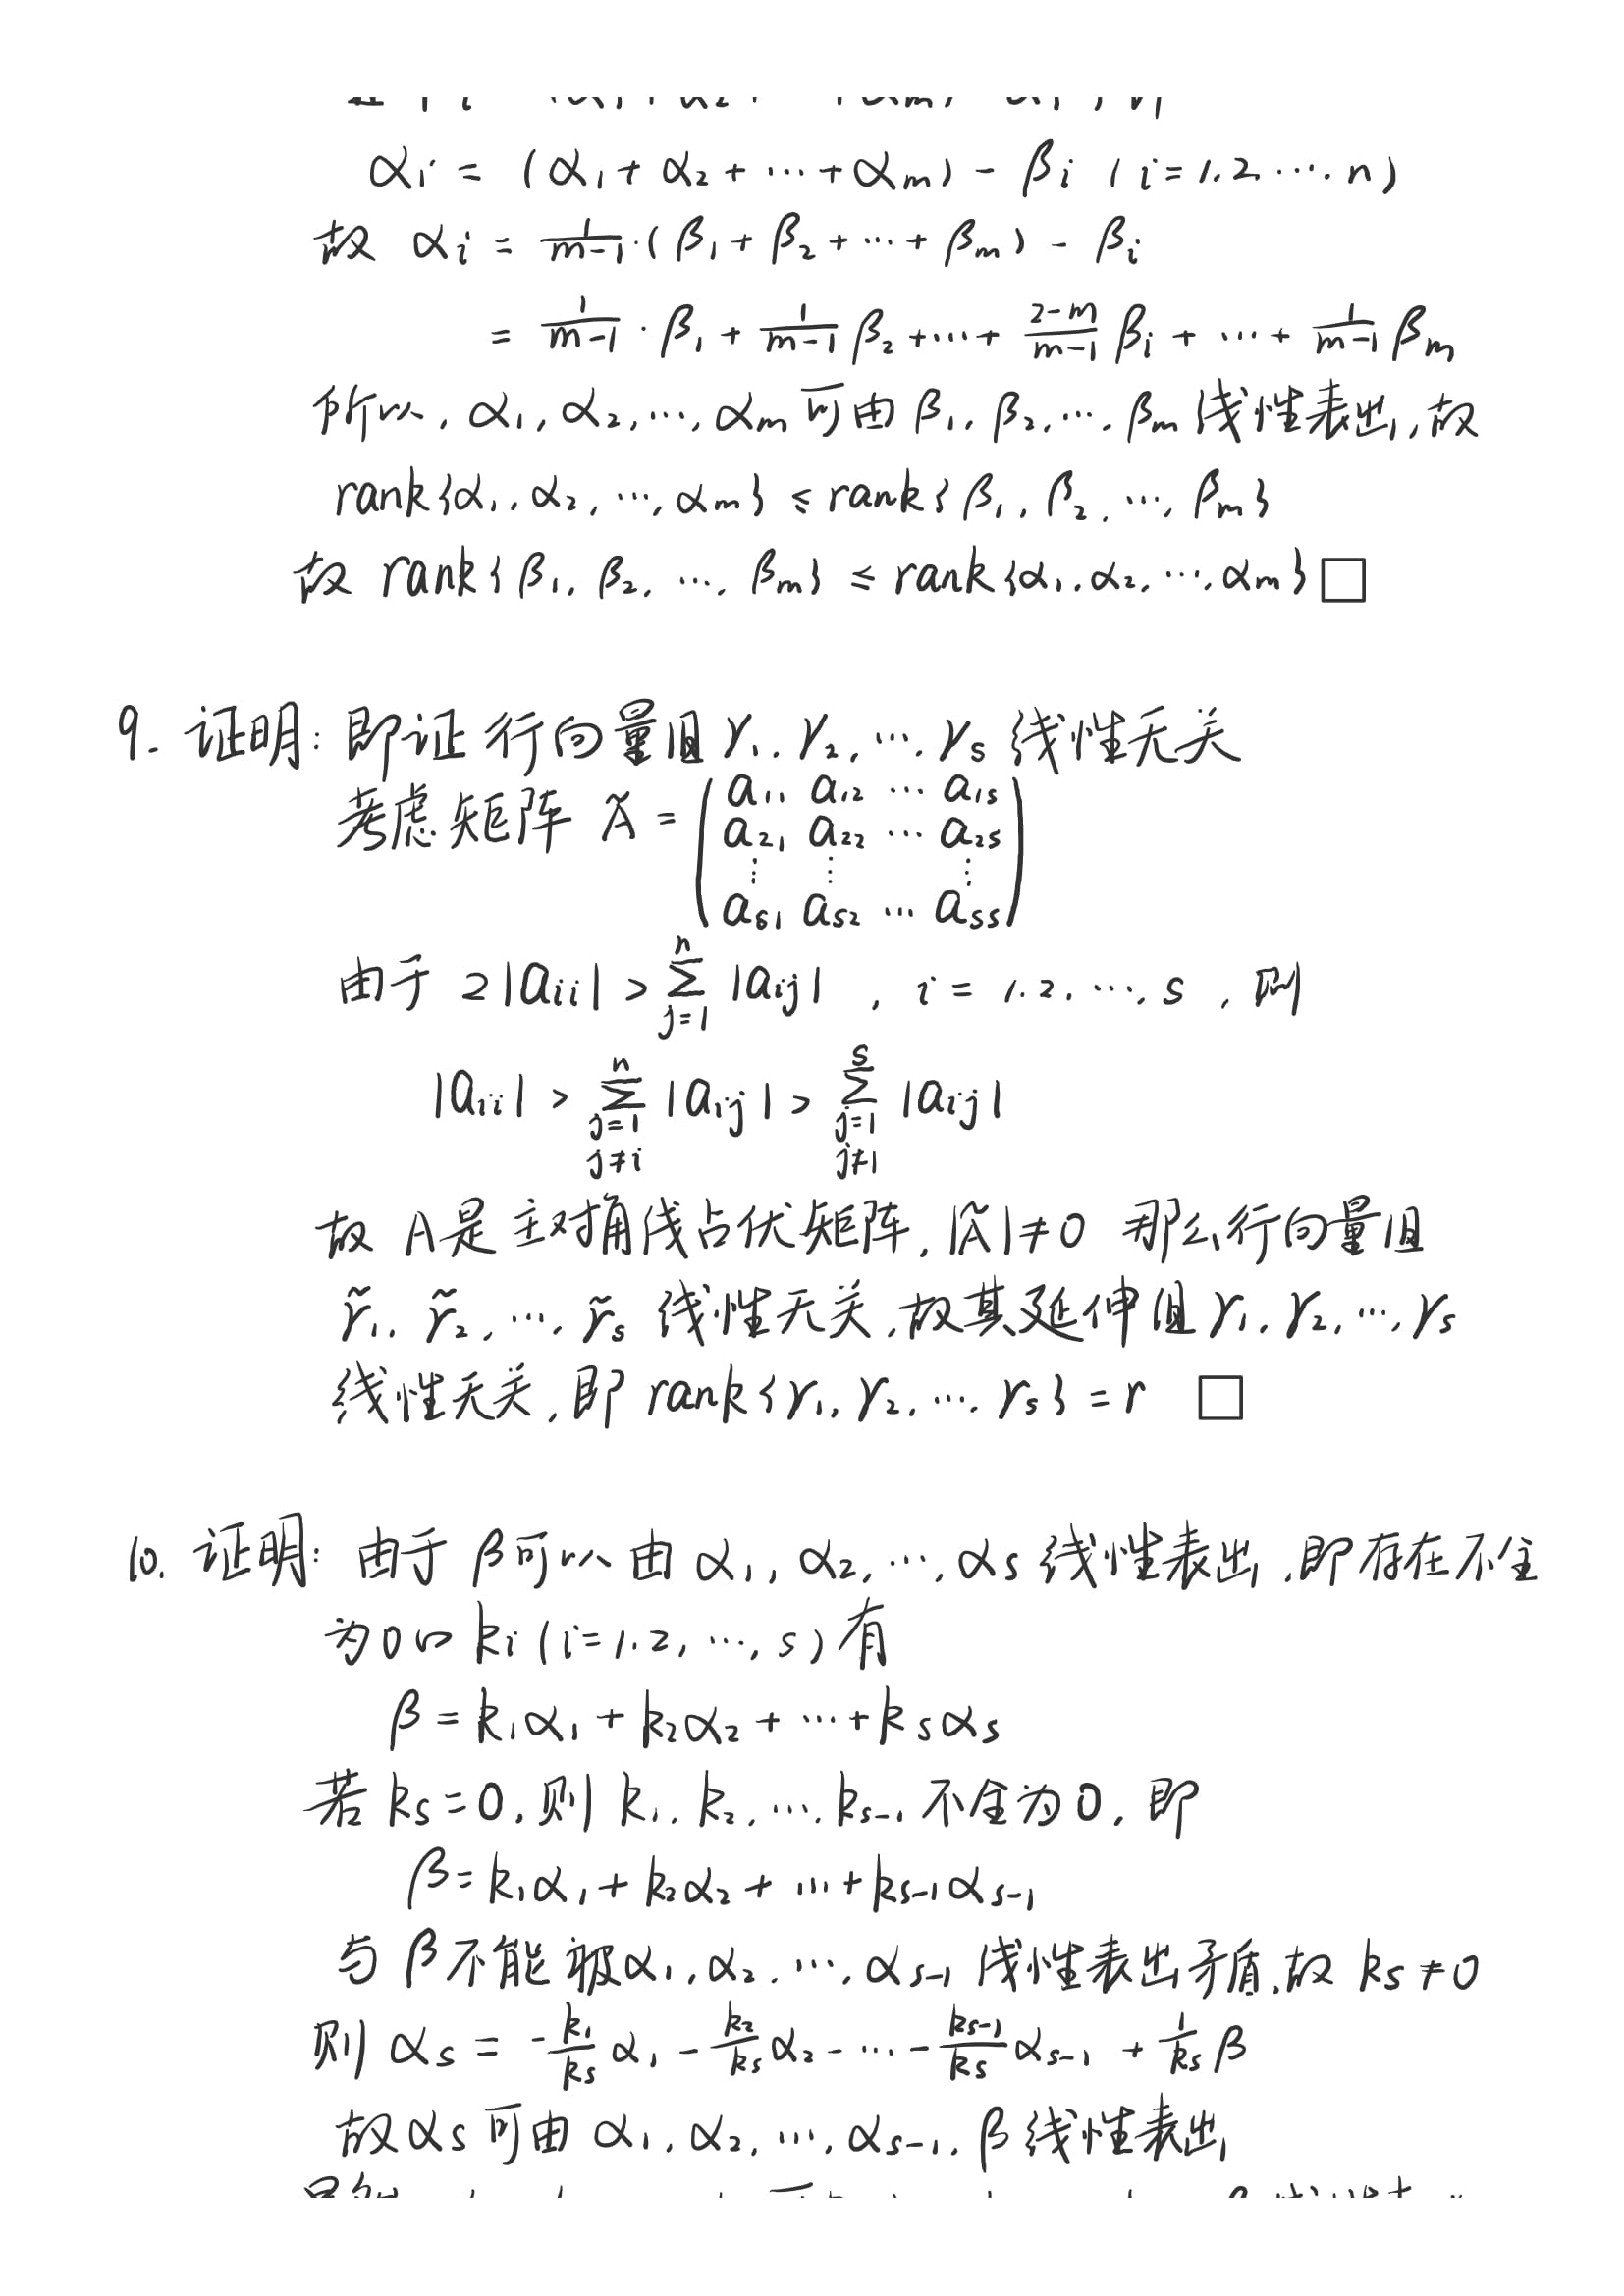 αi = (α1 + α2 + ⋯ + αm) - βi (i=1.2.⋯.n)
故 αi = 1/(m-1)·(β1 + β2 + ⋯ + βm) - βi
= 1/(m-1)·β1 + 1/(m-1) β2 + ⋯ + (2-m)/(m-1) βi + ⋯ + 1/(m-1) βm
所以, α1, α2, ⋯, αm 可由 β1, β2, ⋯, βm 线性表出, 故
rank{α1, α2, ⋯, αm} ≤ rank{β1, β2, ⋯, βm}
故 rank{β1, β2, ⋯, βm} ≤ rank{α1, α2, ⋯, αm} □
9. 证明: 即证 行向量组 γ1. γ2, ⋯. γs 线性无关
考虑矩阵 Ã = ( a11 a12 ⋯ a1s
a21 a22 ⋯ a2s
⋮ ⋮ ⋮
as1 as2 ⋯ ass )
由于 2|aii| > ∑_{j=1}^{n} |aij| , i = 1.2. ⋯, s , 则
|aii| > ∑_{j=1, j≠i}^{n} |aij| > ∑_{j=1, j≠1}^{s} |aij|
故 A是 主对角线占优矩阵, |Ã|≠0 那么行向量组
r̃1, r̃2, ⋯, r̃s 线性无关, 故其延伸组 γ1, γ2, ⋯, γs
线性无关, 即 rank{γ1, γ2, ⋯. γs} = r □
10. 证明: 由于 β可以由 α1, α2, ⋯, αs 线性表出, 即存在不全
为0的 ki (i=1.2, ⋯, s) 有
β = k1α1 + k2α2 + ⋯ + ksαs
若 ks=0, 则 k1. k2. ⋯. ks-1 不全为0, 即
β = k1α1 + k2α2 + ⋯ + ks-1αs-1
与 β不能被α1, α2. ⋯, αs-1 线性表出矛盾, 故 ks≠0
则 αs = -k1/ks α1 - k2/ks α2 - ⋯ - ks-1/ks αs-1 + 1/ks β
故αs可由 α1, α2, ⋯, αs-1, β 线性表出